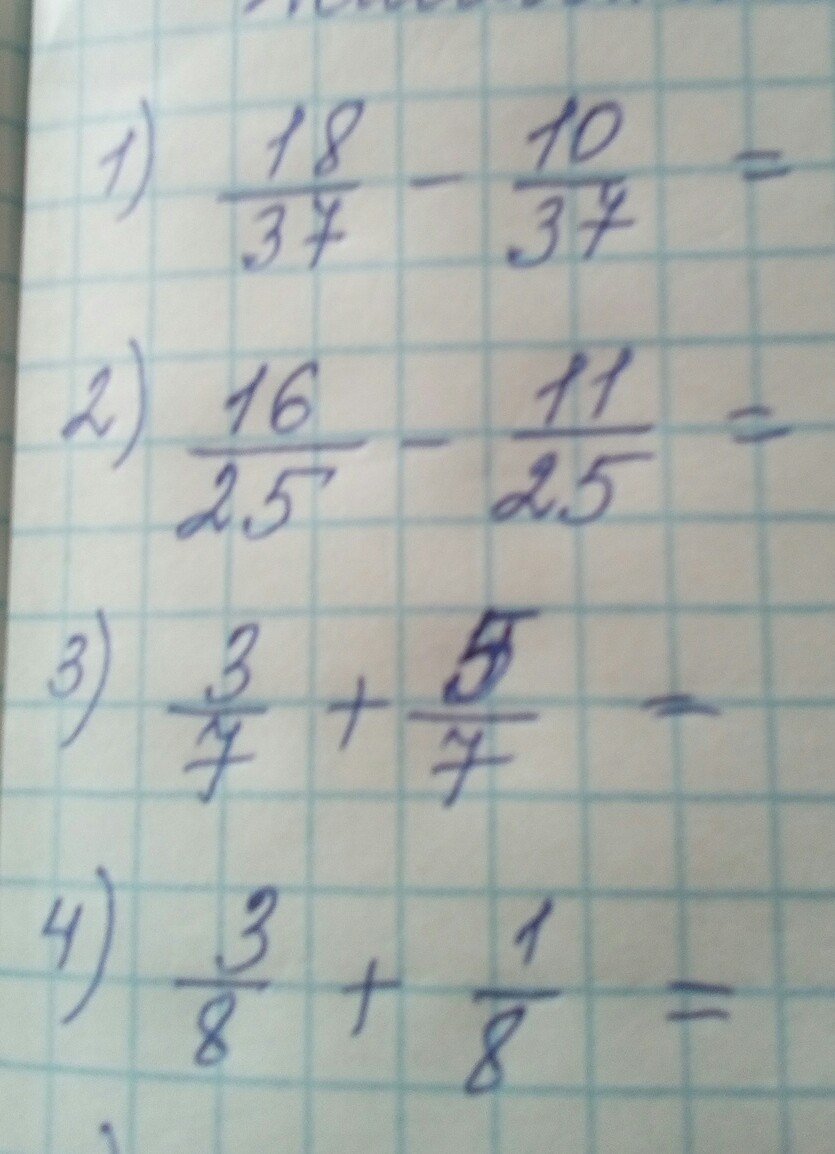 1) 18/37 - 10/37 =
2) 16/25 - 11/25 =
3) 3/7 + 5/7 =
4) 3/8 + 1/8 =